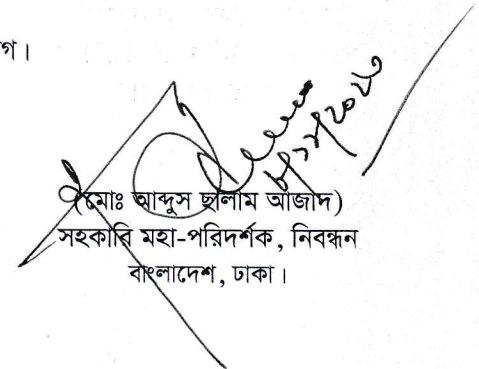 গ।
(মোঃ আব্দুস ছালাম আজাদ)
সহকারি মহা-পরিদর্শক, নিবন্ধন
বাংলাদেশ, ঢাকা।